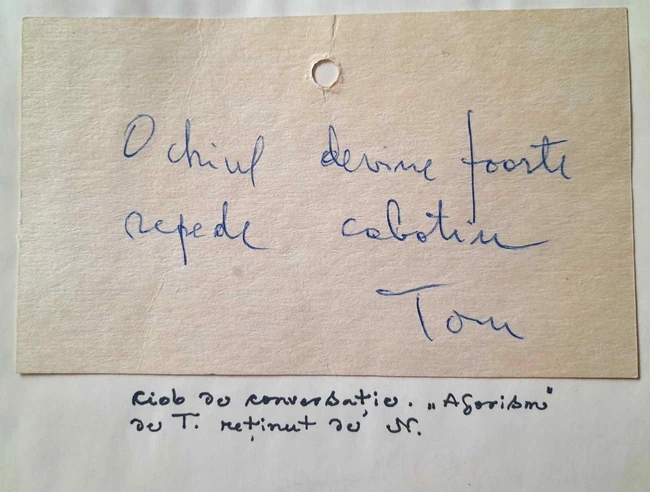 Ochiul devine foarte
repede cabotin
Tom
ciob de conversație. „Aforism"
de T. reținut de N.